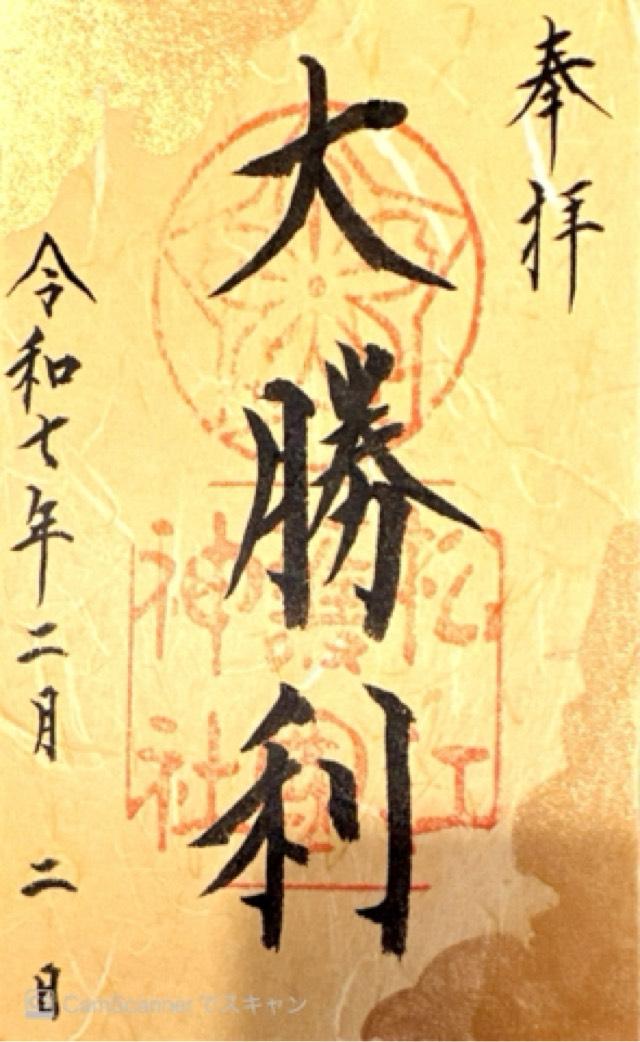 奉拝
大勝利
松江
護國
神社
令和七年二月 二日
CamScannerでスキャン